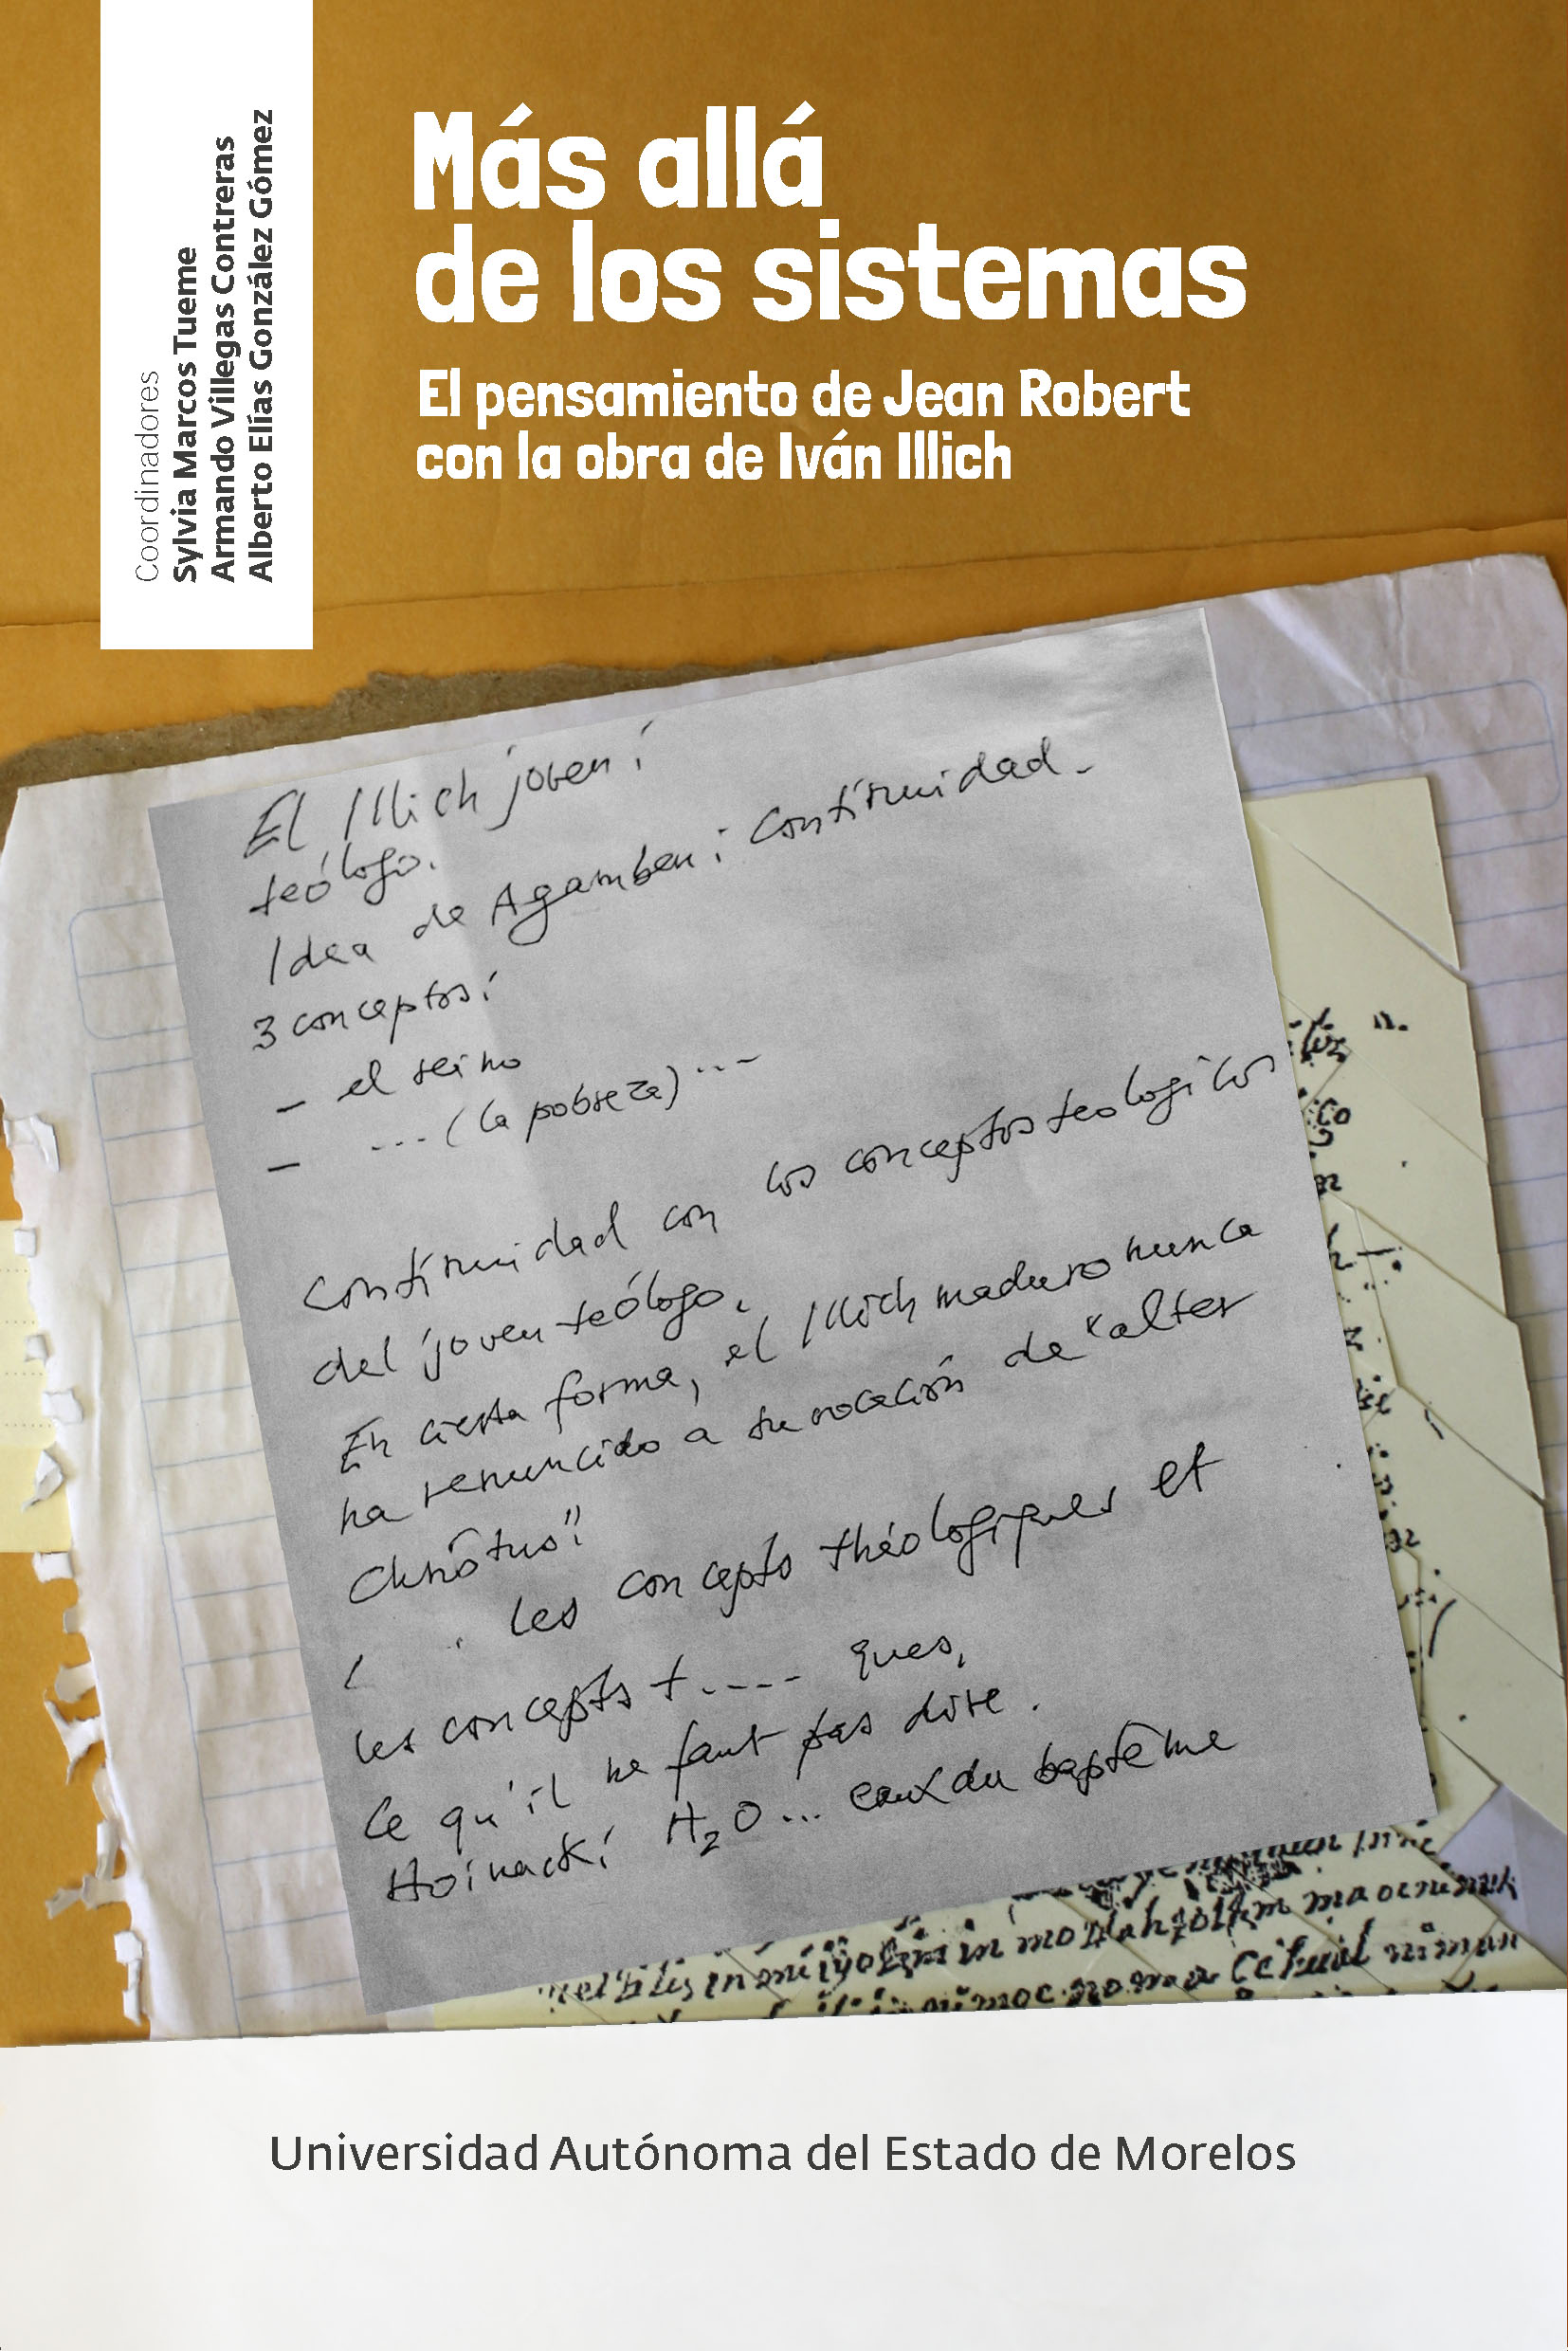 Coordinadores
Sylvia Marcos Tueme
Armando Villegas Contreras
Alberto Elías González Gómez
Más allá
de los sistemas
El pensamiento de Jean Robert
con la obra de Iván Illich
El Illich joven:
teólogo.
Idea de Agamben: continuidad-
3 conceptos:
- el reino
- ...(la pobreza)...-
continuidad con los conceptos teologicos
del joven teólogo.
En cierta forma, el Illich maduro nunca
ha renuncido a su vocación de "alter
Christus":
les concepts théologiques et
les concepts t.---- ques,
Ce qu'il ne faut pas dire.
Hoinacki: H₂O... eaux du baptême
Universidad Autónoma del Estado de Morelos